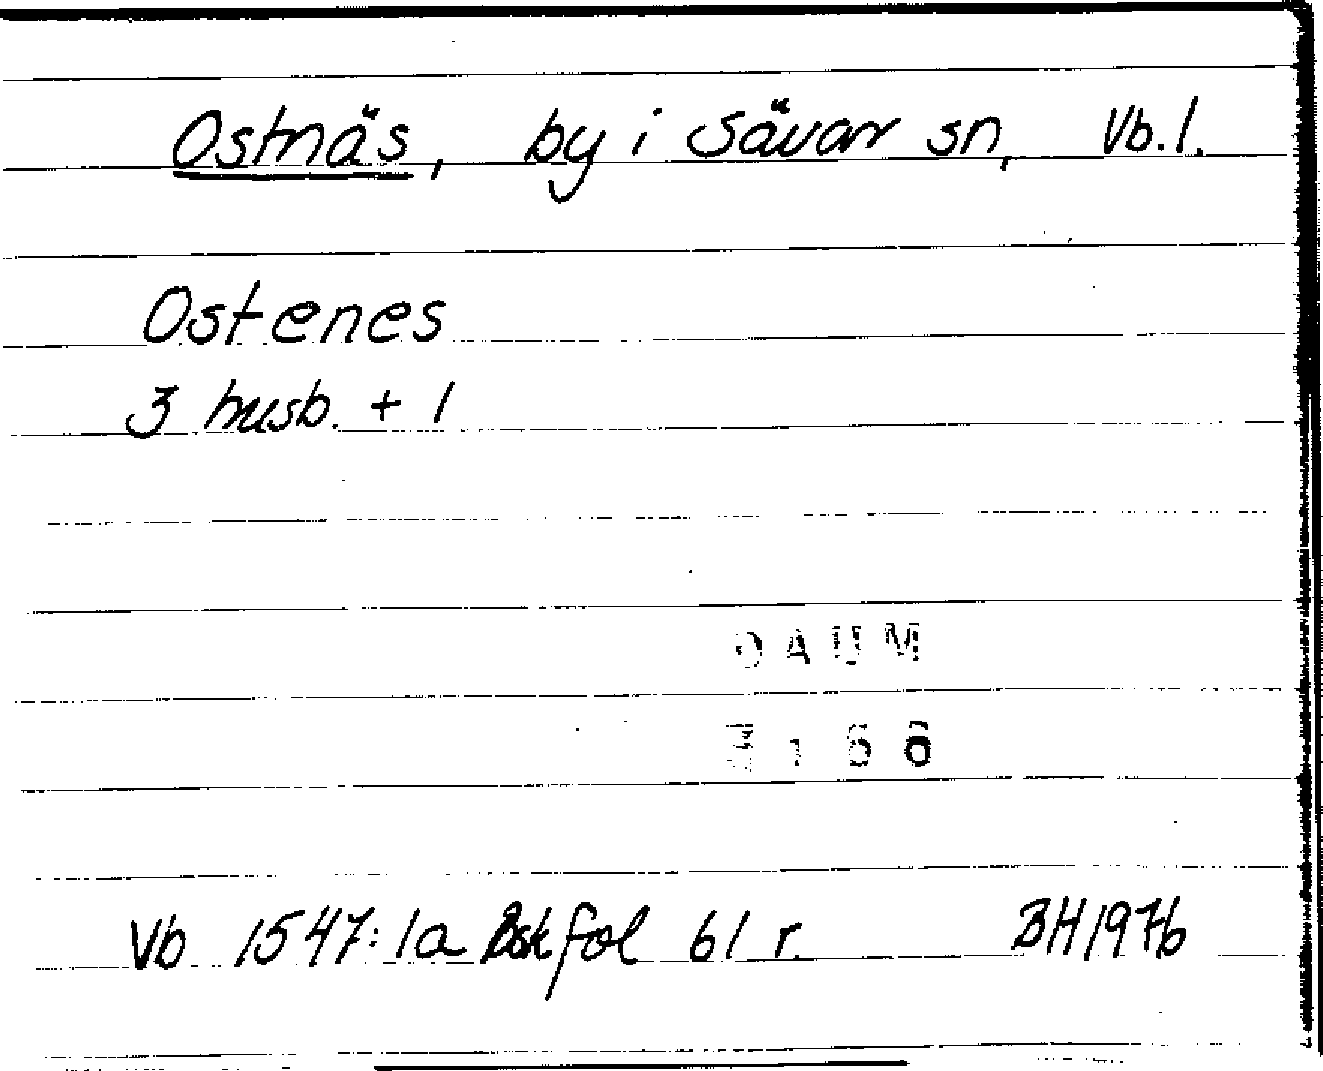 Ostnäs, by i Sävar sn, Vb.l.
Ostenes
3 husb. + 1
DAUM
3166
Vb 1547:1a Bskfol 61 r. BH1976